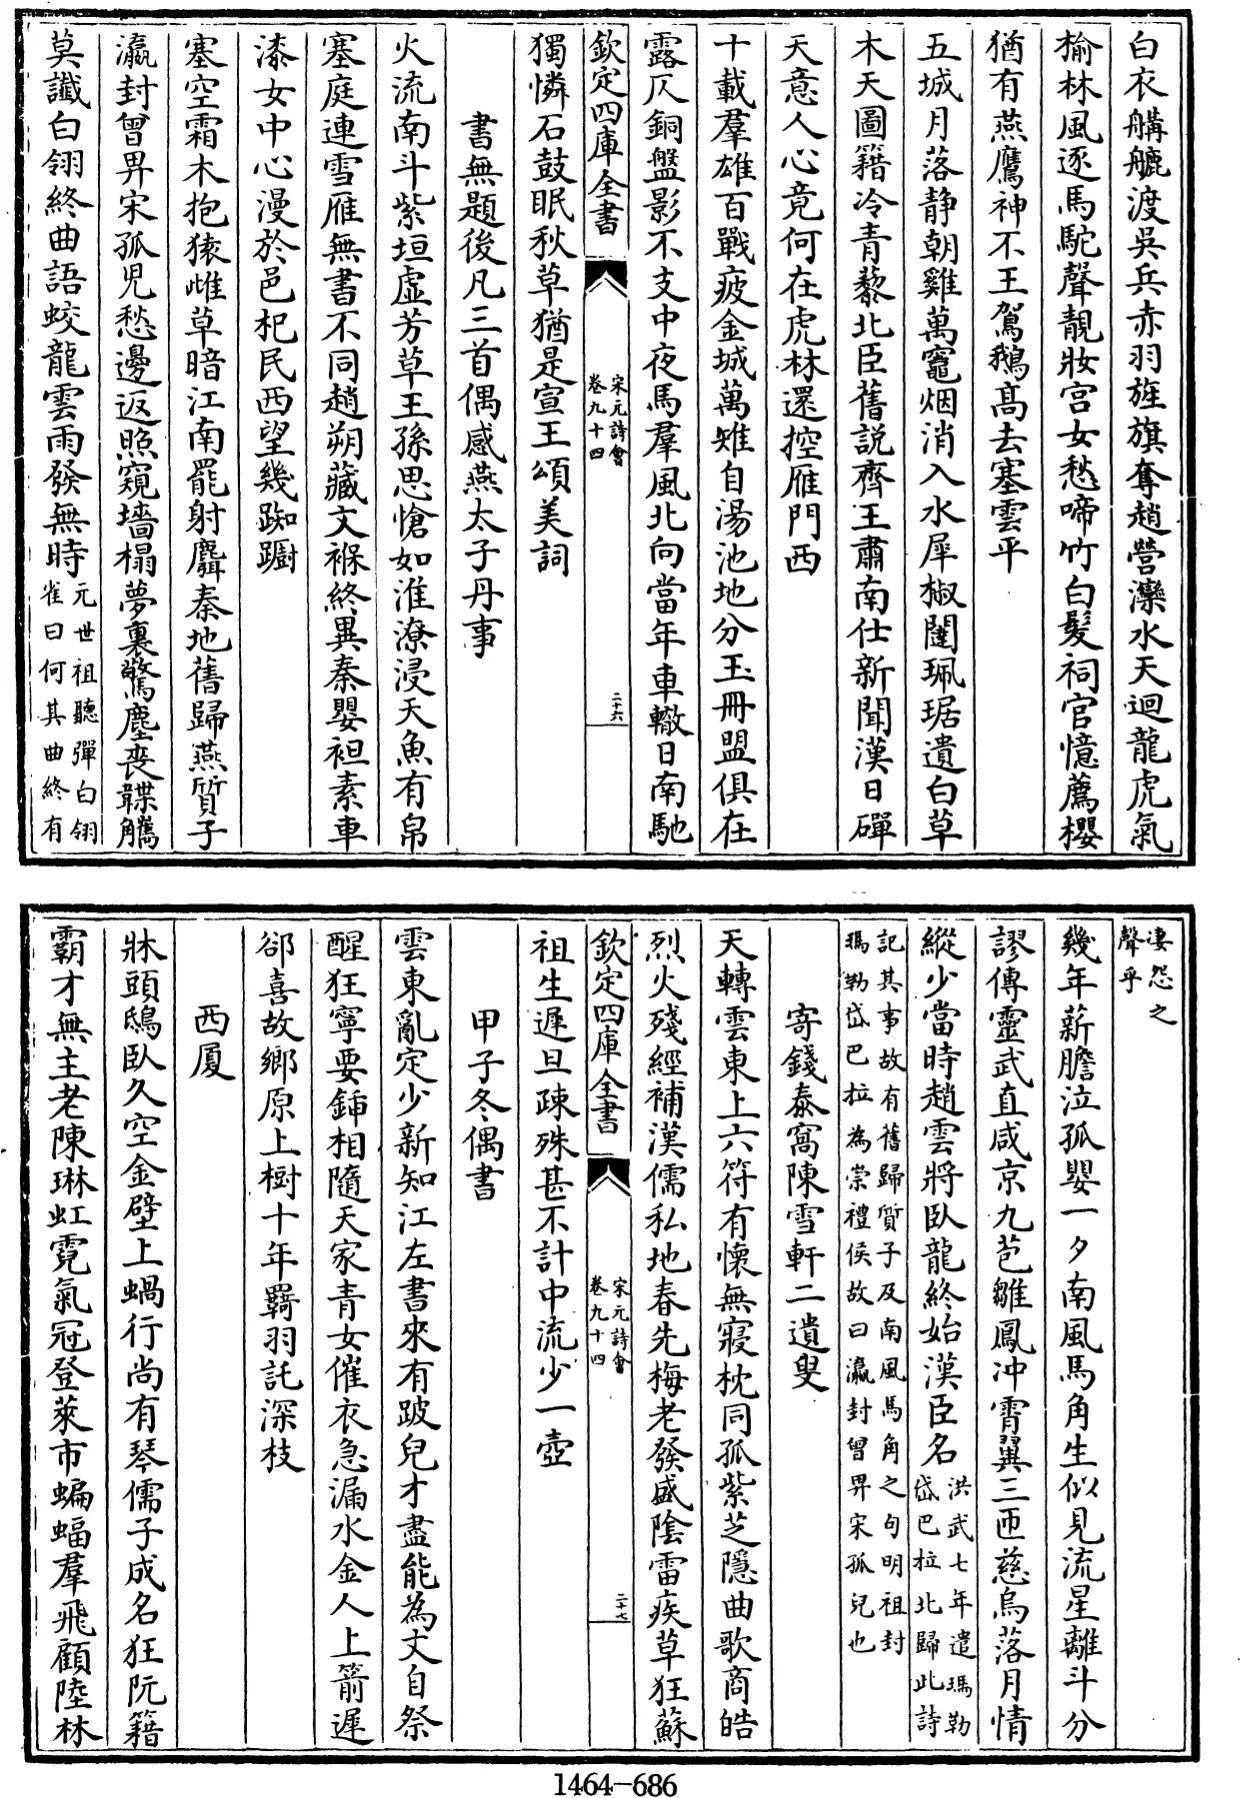 白衣艤艫渡吳兵赤羽旌旗奪趙營灤水天迴龍虎氣
榆林風逐馬駝聲靚妝宫女愁啼竹白髮祠官憶薦櫻
猶有燕鷹神不王駕鵝髙去塞雲平
五城月落静朝雞萬竈烟消入水犀椒闥珮琚遺白草
木天圖籍冷青藜北臣舊説齊王肅南仕新聞漢日磾
天意人心竟何在虎林還控雁門西
十載羣雄百戰疲金城萬雉自湯池地分玉冊盟俱在
露仄銅盤影不支中夜馬羣風北向當年車轍日南馳
欽定四庫全書
宋元詩㑹
卷九十四
二十六
獨憐石鼓眠秋草猶是宣王頌美詞
書無題後凡三首偶感燕太子丹事
火流南斗紫垣虚芳草王孫思愴如淮潦浸天魚有帛
塞庭連雪雁無書不同趙朔藏文褓終異秦嬰袒素車
漆女中心漫於邑杞民西望幾踟蹰
塞空霜木抱猿雌草暗江南罷射麛秦地舊歸燕質子
瀛封曾畀宋孤兒愁邊返照窺墻榻夢裏驚塵喪韘觿
莫讖白翎終曲語蛟龍雲雨發無時
元世祖聽彈白翎
雀曰何其曲終有
凄怨之
聲乎
幾年薪膽泣孤嬰一夕南風馬角生似見流星離斗分
謬傳靈武直咸京九苞雛鳳冲霄翼三匝慈烏落月情
縱少當時趙雲將臥龍終始漢臣名
洪武七年遣瑪勒
岱巴拉北歸此詩
記其事故有舊歸質子及南風馬角之句明祖封
瑪勒岱巴拉為崇禮侯故曰瀛封曾畀宋孤兒也
寄錢泰窩陳雪軒二遺叟
天轉雲東上六符有懷無寢枕同孤紫芝隱曲歌商皓
烈火殘經補漢儒私地春先梅老發盛陰雷疾草狂蘇
欽定四庫全書
宋元詩㑹
卷九十四
二十七
祖生遲旦疎殊甚不計中流少一壺
甲子冬偶書
雲東亂定少新知江左書來有跛兒才盡能為文自祭
醒狂寧要鍤相隨天家青女催衣急漏水金人上箭遲
郤喜故鄉原上樹十年羇羽託深枝
西厦
牀頭鴟臥久空金壁上蝸行尚有琴儒子成名狂阮籍
霸才無主老陳琳虹霓氣冠登萊市蝙蝠羣飛顧陸林
1464-686